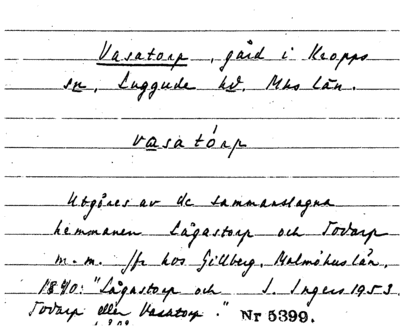 Vasatorp, gård i Kropps
sn, Luggude hd, Mhs län.
vasatórp
Utgöres av de sammanslagna
hemmanen Lågastorp och Todarp
m.m. Jfr hos Gillberg, Malmöhus län,
"Lågastorp och I. Ingers 1953.
Todarp eller Vasatorp." Nr 5399.